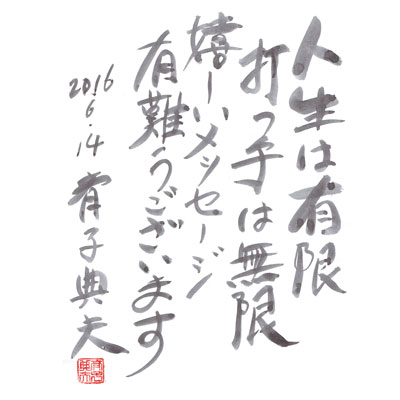 人生は有限
打つ手は無限
嬉しいメッセージ
有難うございます
2016.6.14 典夫